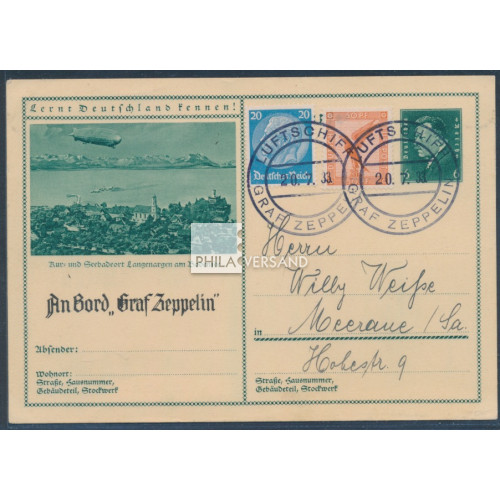 Lernt Deutschland kennen!
20 20
Deutsches Reich
LUFTSCHIFF
20.7.33
GRAF ZEPPELIN
LUFTSCHIFF
20.7.33
GRAF ZEPPELIN
Kur- und Seebadeort Langenargen am
PHILA VERSAND
An Bord „Graf Zeppelin"
Absender:
Wohnort:
Straße, Hausnummer,
Gebäudeteil, Stockwerk
Herrn
Willy Weiße
in Meerane/Sa.
Hohestr. 9
Straße, Hausnummer,
Gebäudeteil, Stockwerk